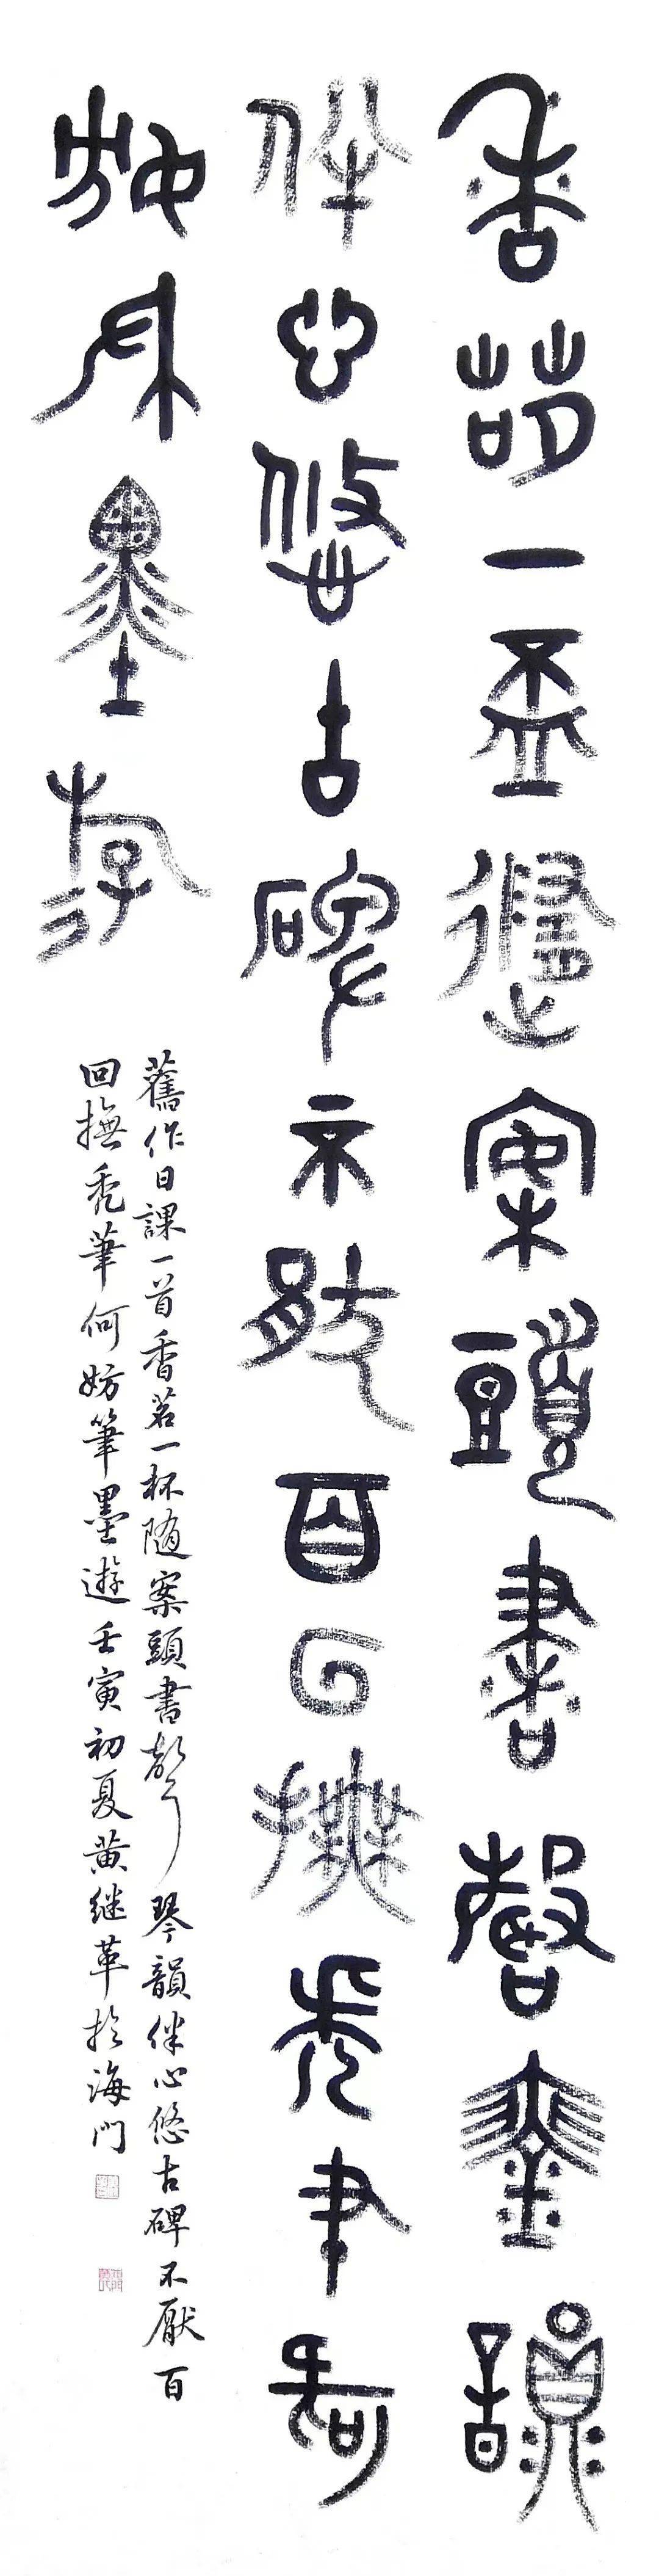 香茗一盃隨案頭書聲琴韻
伴心悠古碑不厭百回撫秃筆何
妨筆墨游
舊作日課一首香茗一杯随案頭書聲琴韻伴心悠古碑不厭百
回撫秃筆何妨筆墨遊壬寅初夏黄继革於海门